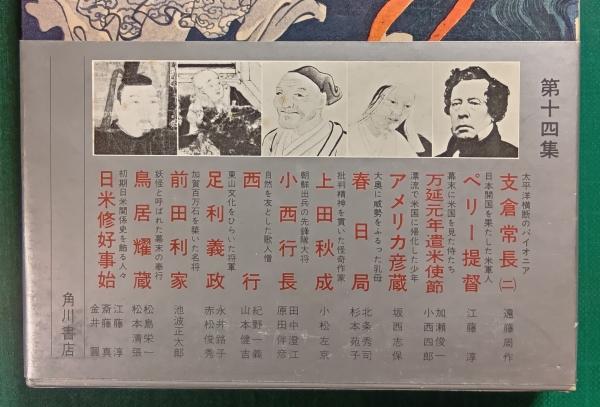 第十四集
太平洋横断のパイオニア
支倉常長(二)
遠藤周作
日本開国を果たした米軍人
ペリー提督
江藤淳
幕末に米国を見た侍たち
万延元年遣米使節
加瀬俊一
小西四郎
漂流で米国に帰化した少年
アメリカ彦蔵
坂西志保
大奥に威勢をふるった乳母
春日局
北条秀司
杉本苑子
批判精神を貫いた怪奇作家
上田秋成
小松左京
朝鮮出兵の先鋒隊大将
小西行長
田中澄江
原田伴彦
自然を友とした歌人僧
西行
紀野一義
山本健吉
東山文化をひらいた将軍
足利義政
永井路子
赤松俊秀
加賀百万石を築いた名将
前田利家
池波正太郎
妖怪と呼ばれた幕末の奉行
鳥居耀蔵
松島栄一
松本清張
初期日米関係史を飾る人々
日米修好事始
江藤淳
斎藤真
金井圓
角川書店